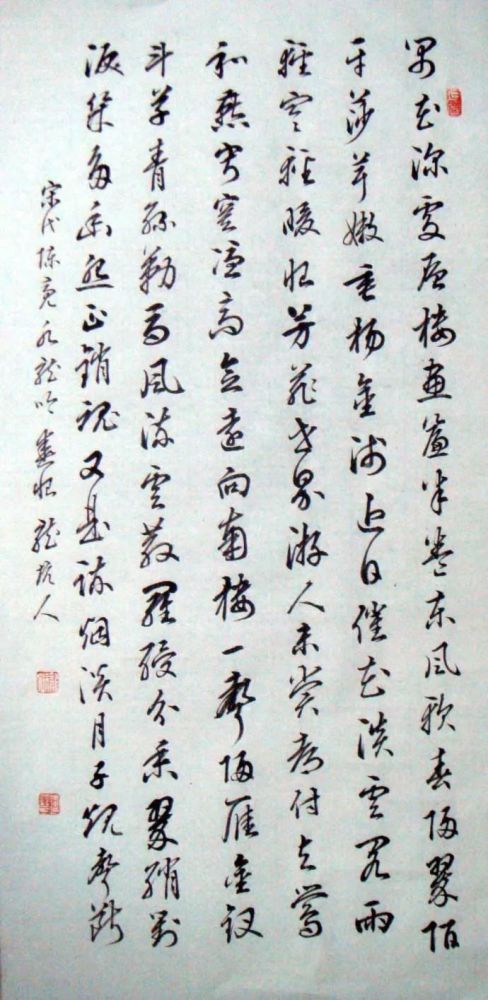 鬧花深處層樓畫簾半卷東風軟春歸翠陌
平莎茸嫩垂楊金淺遲日催花淡雲閣雨
輕寒輕暖恨芳菲世界游人未賞都付與鶯
和燕寂寞憑高念遠向南樓一聲歸雁金釵
斗草青絲勒馬風流雲散羅綬分香翠綃封
淚幾多幽怨正銷魂又是疏煙淡月子規聲斷
宋代陳亮水龍吟春恨